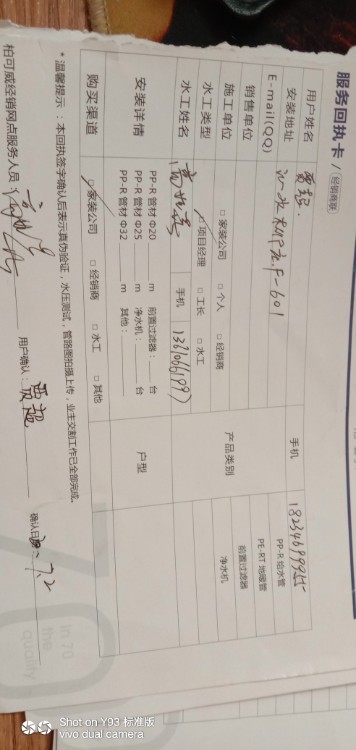 服务回执卡 / 经销商联
用户姓名 贾超 手机 18234699955
安装地址
E-mail(QQ) PP-R 给水管
销售单位 PE-RT 地暖管
施工单位 □ 家装公司 □ 个人 □ 经销商 产品类别 前置过滤器
水工类型 项目经理 □ 工长 □ 水工 净水机
水工姓名 手机
安装详情 PP-R 管材 Φ20 m 前置过滤器: 台 户型
PP-R 管材 Φ25 m 净水机: 台
PP-R 管材 Φ32 m 其他:
购买渠道 家装公司 □ 经销商 □ 水工 □ 其他
* 温馨提示:本回执签字确认后表示真伪验证,水压测试,管路图拍摄上传,业主交割工作已全部完成。
柏可威经销网点服务人员: 用户确认: 贾超 确认日期 7.2
In 70
the
quality
Shot on Y93 标准版
vivo dual camera